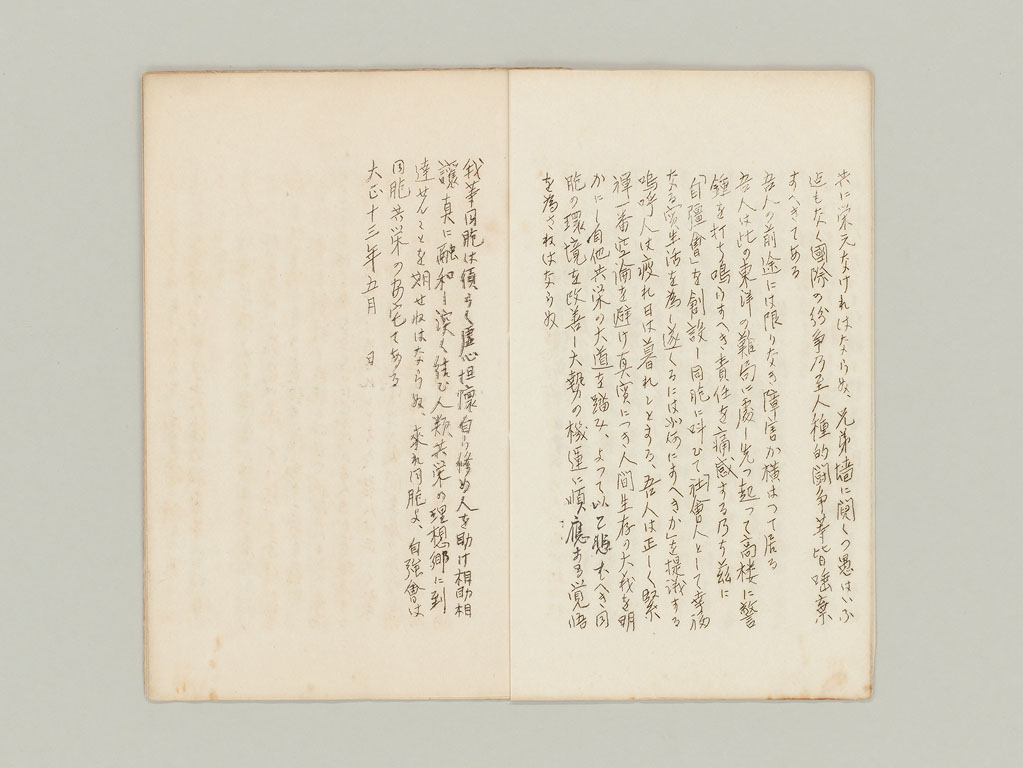 共に栄元なければならぬ、兄弟墻に鬩くの愚はいふ
迄もなく國際の紛争乃至人種的闘争等皆唾棄
すへきてある
吾人の前途には限りなき障害か横はつて居る
吾人は此の東洋の難局に處し先つ起つて高楼に警
鍾を打ち鳴らすへき責任を痛感する乃ち茲に
「自彊會」を創設し同胞に呼ひて社會人として幸福
なる實生活を為し遂くるには如何にすへきか」を提議する
嗚呼人は疲れ日は暮れしとする、吾人は正しく緊
褌一番空論を避け真實につき人間生存の大我を明
かにし自他共栄の大道を踏み、よつて以て悲むへき同
胞の環境を改善し大勢の機運に順應する覚悟
を為さねはならぬ
我等同胞は須らく虚心坦懐自ら修め人を助け相助相
譲真に融和し深く結ひ人類共栄の理想郷に到
達せんことを期せねはならぬ、来れ同胞よ、自強會は
同胞共栄の安宅てある
大正十三年五月 日